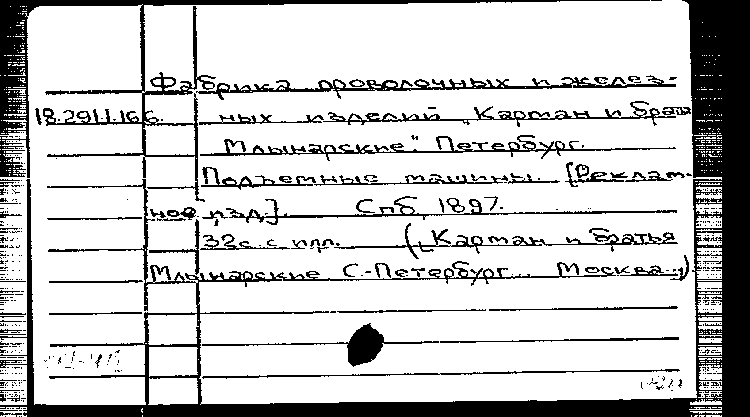 Фабрика проволочных и желез-
18.291.1.166. ных изделий „Картан и братья
Млынарские". Петербург.
Подъемные машины. [Реклам-
ное изд.]. Спб, 1897.
32с. с илл. („Картан и братья
Млынарские С.-Петербург... Москва...")